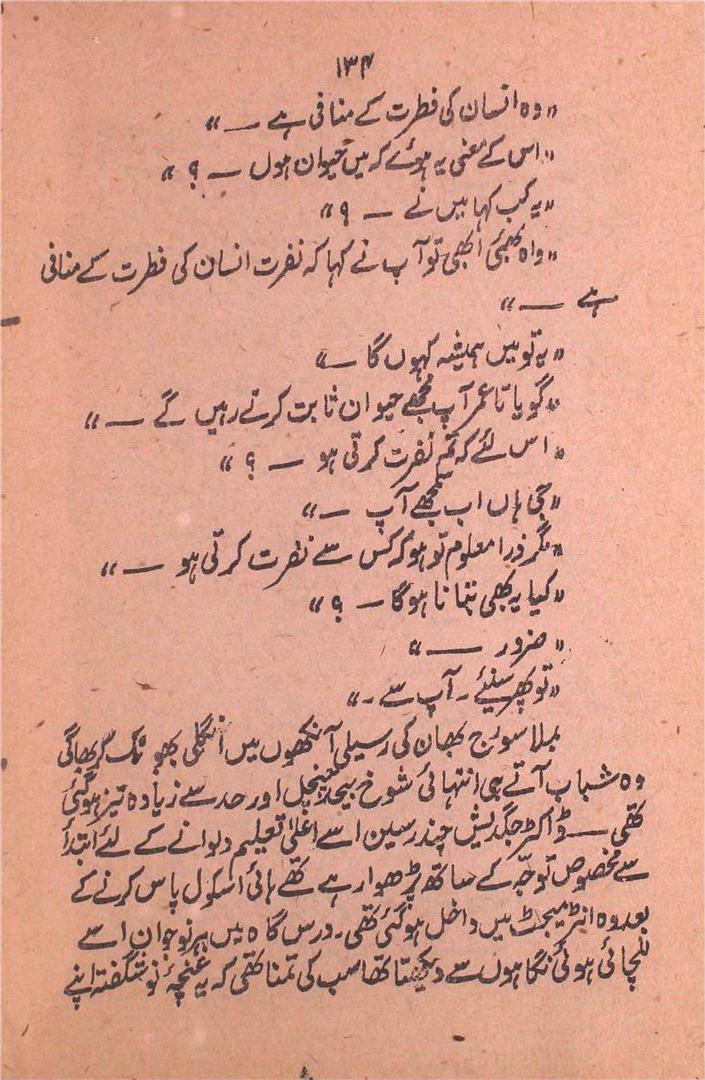 ۱۳۴
"وہ انسان کی فطرت کے منافی ہے ——"
"اس کے معنی یہ ہوئے کہ میں حیوان ہوں — ؟"
"یہ کب کہا میں نے — ؟"
"واہ بھئی ابھی تو آپ نے کہا کہ نفرت انسان کی فطرت کے منافی
ہے ——"
"یہ تو میں ہمیشہ کہوں گا —"
"گویا تا عمر آپ مجھے حیوان ثابت کرتے رہیں گے ——"
"اس لئے کہ تم نفرت کرتی ہو — ؟"
"جی ہاں اب سمجھے آپ —"
"مگر ذرا معلوم تو ہو کہ کس سے نفرت کرتی ہو ——"
"کیا یہ بھی بتانا ہوگا — ؟"
"ضرور ——"
"تو پھر سنیئے - آپ سے -"
بملا سورج بھان کی رسیلی آنکھوں میں انگلی بھونک کر بھاگی
وہ شباب آتے ہی انتہائی شوخ چنچل اور حد سے زیادہ تیز ہو گئی
تھی — ڈاکٹر جگدیش چندر سین اسے اعلیٰ تعلیم دلوانے کے لئے ابتدأ
سے مخصوص توجہ کے ساتھ پڑھوا رہے تھے ہائی اسکول پاس کرنے کے
بعد وہ انٹرمیجٹ میں داخل ہو گئی تھی۔ درس گاہ میں ہر نوجوان اسے
للچائی ہوئی نگاہوں سے دیکھتا تھا سب کی تمنا تھی کہ یہ غنچۂ نوشگفتہ اپنے